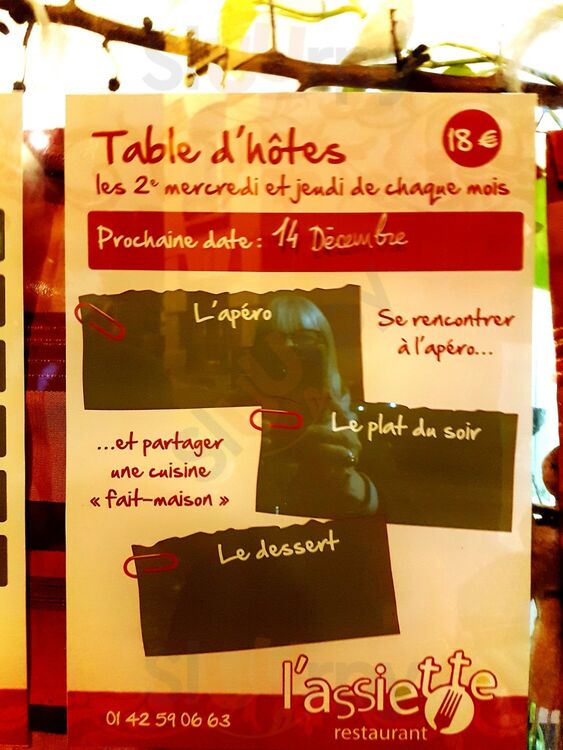 Table d'hôtes
18 €
les 2e mercredi et jeudi de chaque mois
Prochaine date : 14 Décembre
L'apéro
Se rencontrer
à l'apéro...
Le plat du soir
...et partager
une cuisine
« fait-maison »
Le dessert
l'assiette
restaurant
01 42 59 06 63